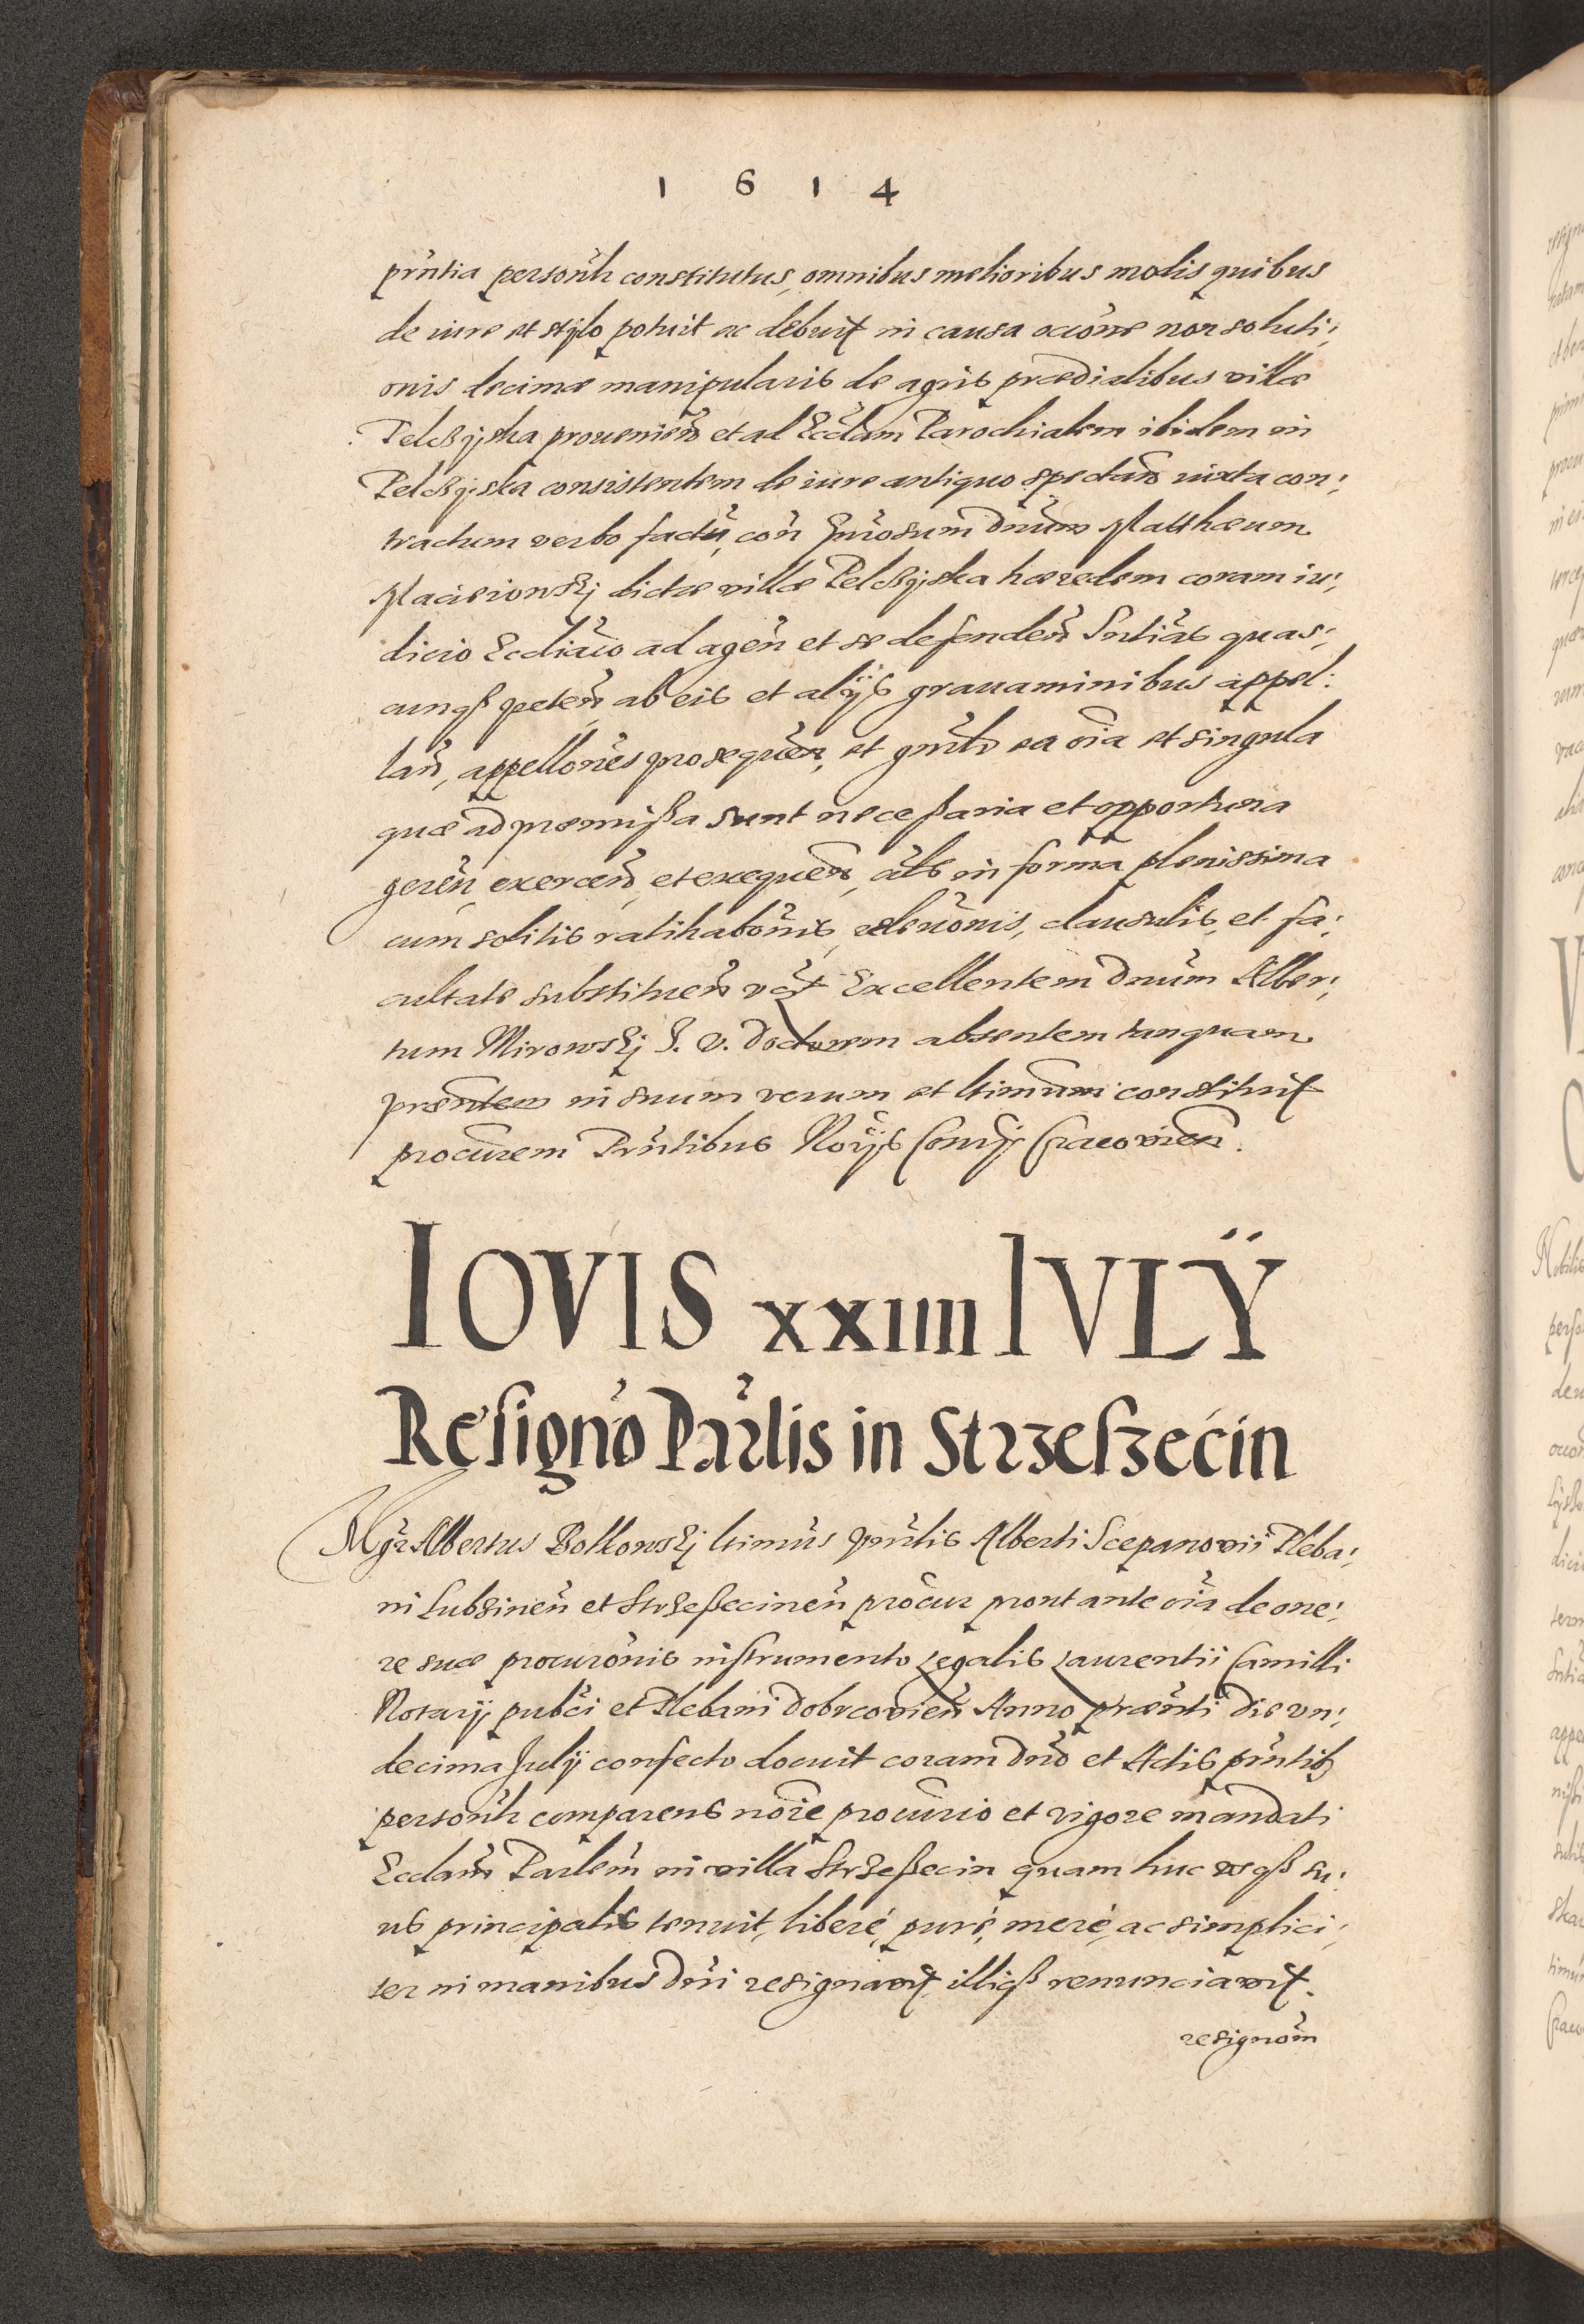 1 6 1 4
prñtia persoñlr constitutus, omnibus melioribus modis quibus
de iure et stylo potuit ac debuit in causa ocione non soluti;
onis decimæ manipularis de agris prædialibus villæ
Pelcżyska proueniend et ad Ecclam Parochialem ibidem in
Pelcżyska consistentem de iure antiquo spectand iuxta con;
tractum verbo factũ, con Gnrosum Dnum Matthæum
Macieiowskj dictæ villæ Pelcżyska hæredem coram iu;
dicio Eccliãco ad agen et se defenden Sntias quas;
cunqß peten, ab eis et alÿs grauaminibus appel:
lañ, appellones prosequen, et gnrlr ea oia et singula
quæ ad præmißa sunt neceßaria et opportuna
geren, exercen, et exequen, als in forma plenissima
cum solitis ratihabonis, releuonis, clausulis, et fa;
cultate substituen vct Excellentem Dnum Alber;
tum Mirowskj I. V. Doctorem absentem tanquam
præntem in suum verum et ltimum constituit
procurem Prñtibus Norÿs Consÿ Cracovien.
IOVIS XXIIII IVLŸ
Resigno Parlis in Strzeszecin
Mgr Albertus Bolkowskj ltimus prñlis Alberti Scepanovii Pleba;
ni Lubzinen et Strzeßecinen procur prout ante oia de one;
re suæ procuronis instrumento Legalis Laurentii Camilli
Notarÿ pubci et Plebani Dobrcovien Anno prænti die vn;
decima Julÿ confecto docuit coram Dno et Actis prñtib
persoñlr comparens noie procurio et vigore mandati
Ecclam Parlem in villa Strzeßecin quam huc vsqß su;
us principalis tenuit, liberé, puré, meré, ac simplici;
ter in manibus Dni resignavit illiqß renunciavit.
resignom